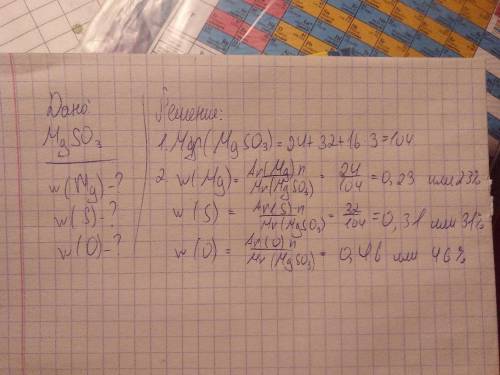 Дано:
MgSO₃
w(Mg)-?
w(S)-?
w(O)-?
Решение:
1. Mr(MgSO₃)=24+32+16·3=104
2. w(Mg)=Ar(Mg)·n/Mr(MgSO₃)=24/104=0,23 или 23%
w(S)=Ar(S)·n/Mr(MgSO₃)=32/104=0,31 или 31%
w(O)=Ar(O)·n/Mr(MgSO₃)=0,46 или 46%